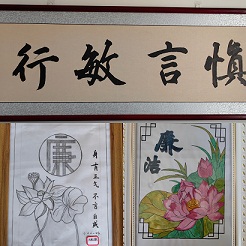 慎言敏行
廉
身有正气 不言自威
廉洁